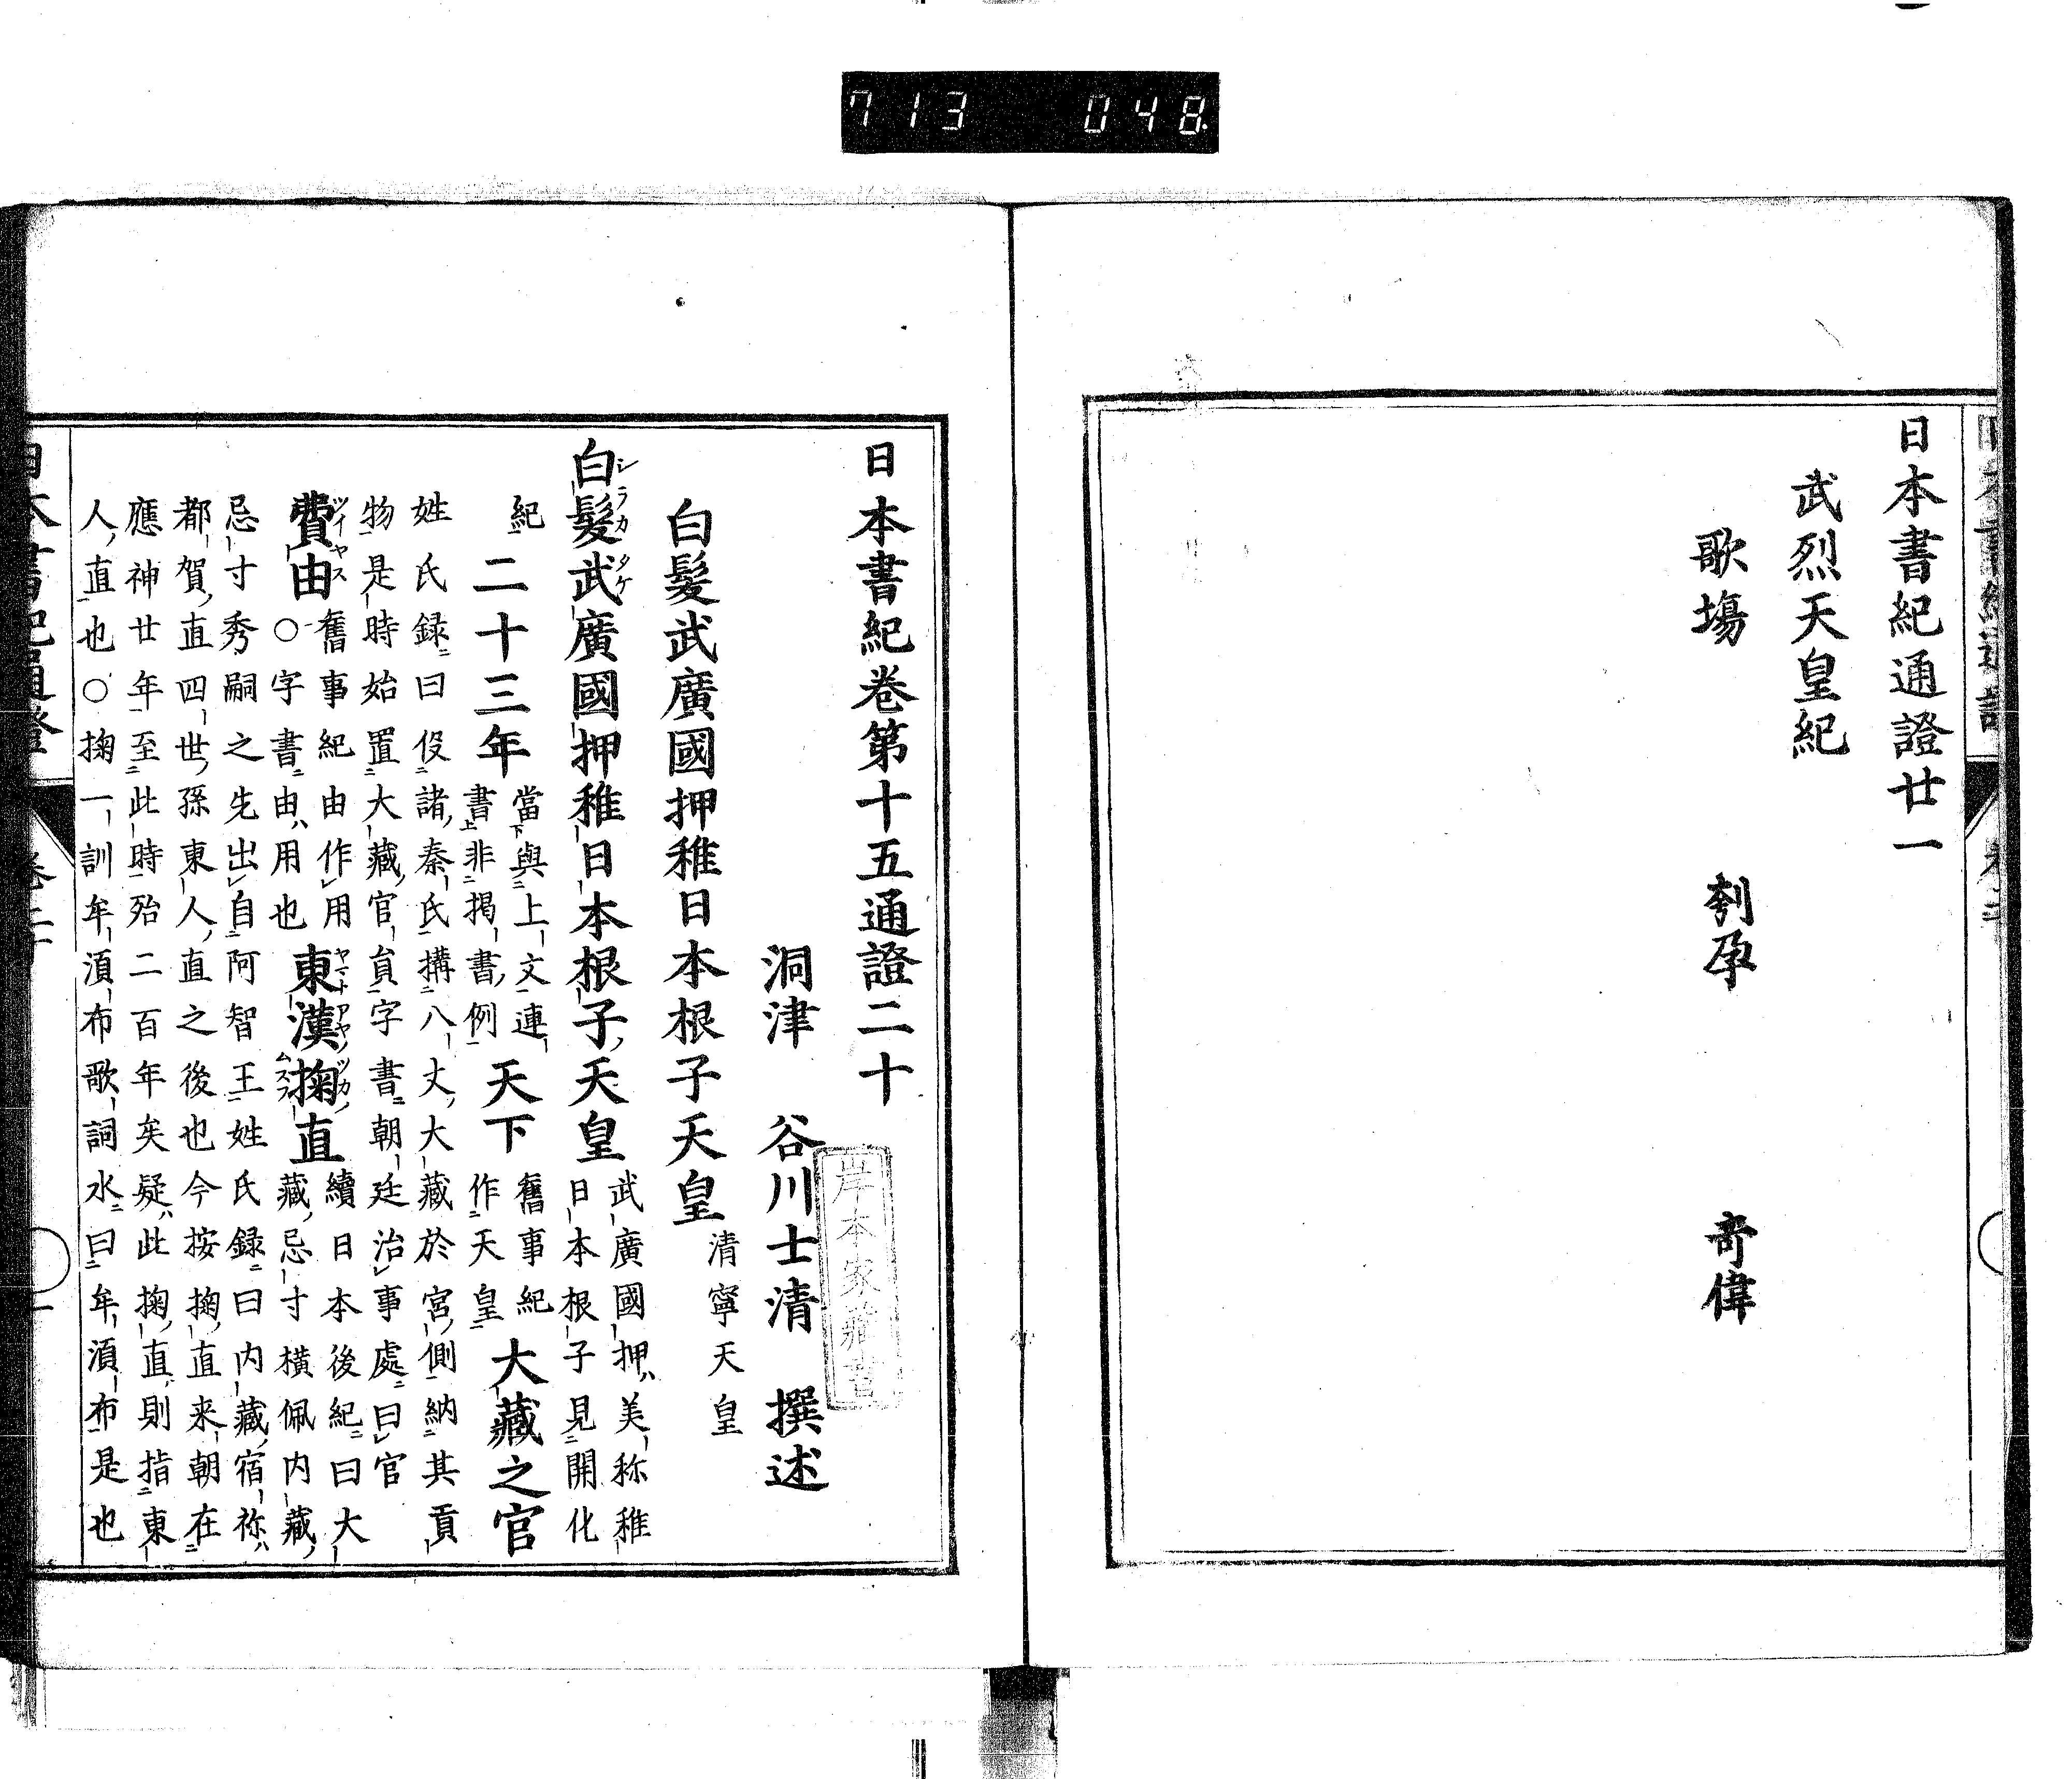 713 048
日本書紀通證廿一
武烈天皇紀
歌場 刳孕 奇偉
日本書紀卷第十五通證二十
洞津 谷川士清 撰述
岸本家藏書
白髮武廣國押稚日本根子天皇 清寧天皇
白髮武廣國押稚日本根子天皇 武廣國押美称稚
シラカ タケ
日本根子見開化
紀 二十三年 當與上文連
書非揭書例 天下 舊事紀
作天皇 大藏之官
姓氏録曰役諸秦氏搆八丈大藏於宮側納其貢
物是時始置大藏官貟字書朝廷治事處曰官
費由 舊事紀由作用
ツイヤス
○字書由用也 東漢掬直 續日本後紀曰大
ヤマトアヤノツカノ
ムスフ
藏忌寸横佩内藏
忌寸秀嗣之先出自阿智王姓氏録曰内藏宿祢
都賀直四世孫東人直之後也今按掬直来朝在
應神廿年至此時殆二百年矣疑此掬直則指東
人直也○掬一訓牟湏布歌詞水曰牟湏布是也
日本書紀通證 卷二十 一